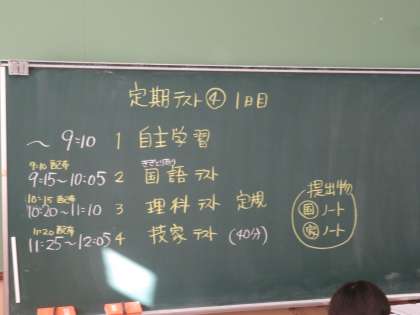 定期テスト④ 1日目
〜 9:10 1 自主学習
9:10 配布
ききとりあり
9:15〜10:05 2 国語 テスト
10:15 配布
10:20〜11:10 3 理科 テスト 定規
11:20 配布
11:25〜12:05 4 技家 テスト (40分)
提出物
国 ノート
家 ノート